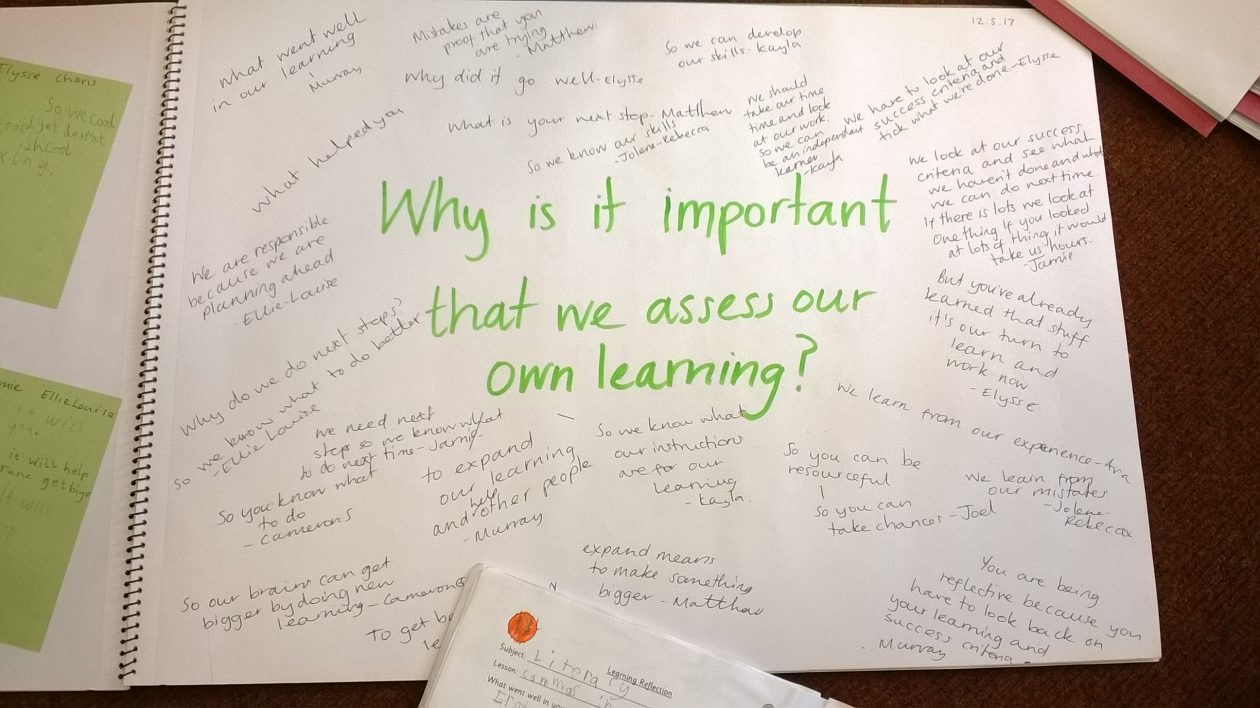 12.5.17
What went well
in our learning
- Murray
Mistakes are
proof that you
are trying
- Matthew.
So we can develop
our skills - Kayla
Why did it go well - Elysse
What is your next step - Matthew
So we know our skills
- Jolene-Rebecca
We should
take our time
time and look
at our work.
so we can
be an independent
learner
- Kayla
We have to look at our
success criteria and
tick what we're done - Elysse
What helped you
We look at our success
criteria and see what
we haven't done and what
we can do next time.
If there is lots we look at
one thing If you looked
at lots of thing it would
take us hours.
- Jamie
Why is it important
that we assess our
own learning?
We are responsible
because we are
planning ahead
- Ellie-Louise
But you're already
learned that stuff
it's our turn to
learn and
work now
- Elysse
Why do we do next steps?
So we know what to do better
- Ellie Louise
we need next
steps so we know what
to do next time - Jamie.
So you know what
to do
- Cameron S
to expand
our learning
and help other people
- Murray
So we know what
our instructions
are for our
learning
- Kayla.
We learn from our experience - Ava
So you can be
resourceful
so you can
take chances - Joel
We learn from
our mistakes
- Jolene-
Rebecca
So our brains can get
bigger by doing new
learning - Cameron G
To get
expand means
to make something
bigger - Matthew
You are being
reflective because you
have to look back on
your learning and
success criteria.
- Murray
Elysse Charis
So we
get
Ellie Louise
it will
it will help
Learning Reflection
Subject: Literacy
Lesson: commas in
What went well in